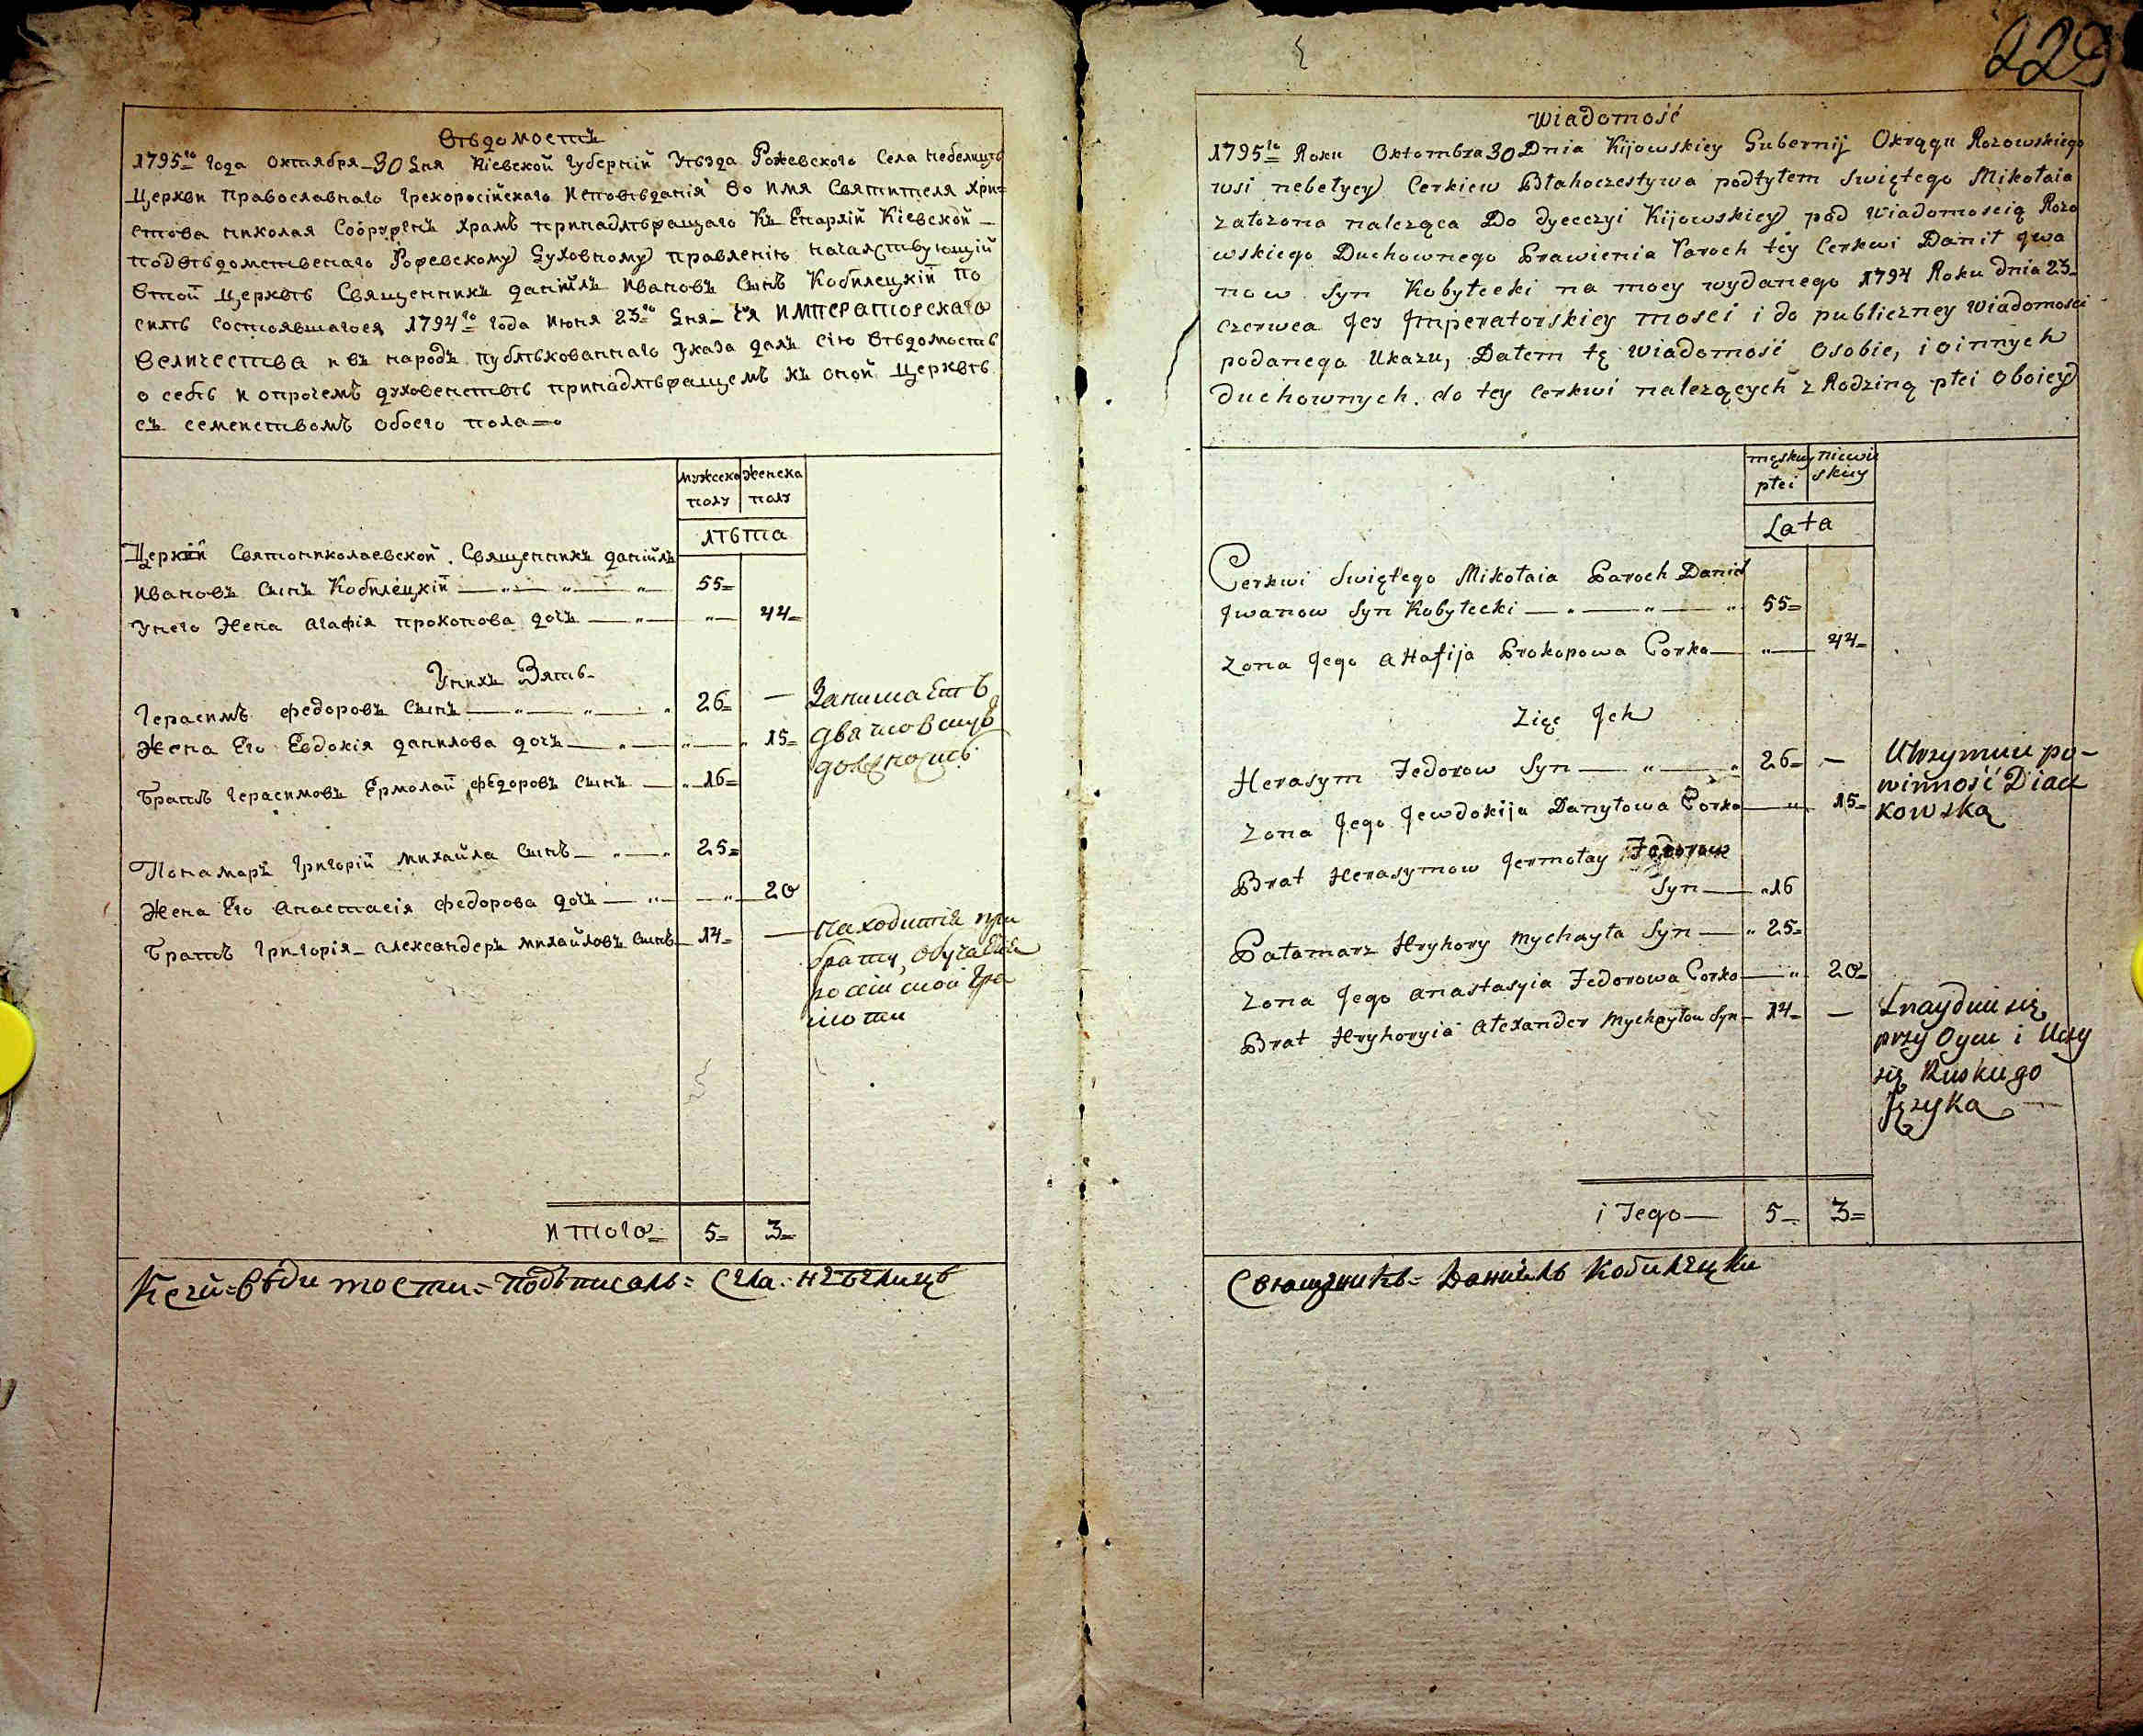 Вѣдомость
1795го Года Октября 30 Дня Кіевской Губерніи Уѣзда Рожевского Села Небелицѣ
Церкви Православнаго Грекоросійскаго Исповѣданія Во Имя Святителя Хри=
стова Николая Сооружень Храмъ принадлѣжащаго Къ Епархіи Кіевской
подвѣдомственаго Рожевскому Духовному правленію начальствующій
Втой Церквѣ Священникъ Даніилъ Ивановъ Сынъ Кобилецкій По
силѣ состоявшагося 1794го Года Июня 23го Дня Ея ИМПЕРАТОРСКАГО
ВЕЛИЧЕСТВА и въ народъ публѣкованнаго Указа далъ Сію Вѣдомость
о себѣ и опрочемъ духовенствѣ принадлѣжащемъ къ оной Церквѣ
съ семействомъ обоего пола
Мужеска Женска
полу полу
лѣта
Церкви Святониколаевской Священникъ Даніилъ
Ивановъ Сынъ Кобилецкій 55
Унего Жена Агафія прокопова дочь 44
Унихъ Зять
Герасимъ федоровъ Сынъ 26 — Занимаетъ
Жена Его Евдокія данилова дочь 15 дячковскую
должность
Братъ Герасимовъ Ермолай федоровъ Сынъ 16
Понамарь Григорій Михайла Сынъ 25
Жена Его Анастасія федорова дочь 20
Братъ Григорія Александеръ Михайловъ Сынъ 14 — Находится при
брату, обучается
россійской гра
моти
Итого 5 3
К сей вѣдимости подъписалъ Села Небелицѣ
229
Wiadomość
1795go Roku Oktombra 30 Dnia Kijowskiey Gubernij Okrągu Rozowskiego
wsi nebełycy Cerkiew Błahoczestywa podtytem Swiętego Mikołaia
załozona naleząca Do dyecezyi Kijowskiey pod Wiadomoscią Rozo
wskiego Duchownego Prawienia Paroch tey Cerkwi Danił Jwa
now Syn Kobyłecki na mocy wydanego 1794 Roku dnia 23
czerwca Jey Jmperatorskiey mosci i do publiczney wiadomosci
podanego Ukazu, Dałem tę Wiadomość osobie, i oinnych
duchownych do tey Cerkwi nalezących z Rodziną płci oboiey
męskiey niewie
płci skiey
Lata
Cerkwi Swiętego Mikołaia Paroch Danił
Jwanow Syn Kobyłecki 55
Zona Jego aHafija Prokopowa Corka 44
Zięc Jch
Herasym Fedorow Syn 26 — Utrzymuie po-
Zona Jego Jewdokija Danyłowa Corka 15 winność Diacz
kowską
Brat Herasymow Jermołay Fedorow
Syn 16
Pałamarz Hryhory Mychayła Syn 25
Zona Jego anastasyia Fedorowa Corka 20
Brat Hryhoryia Alexander Mychayłow Syn 14 — Znayduie się
przy Oycu i Uczy
się Ruskiego
Języka
i Tego 5 3
Священикъ Даниилъ Кобилецки